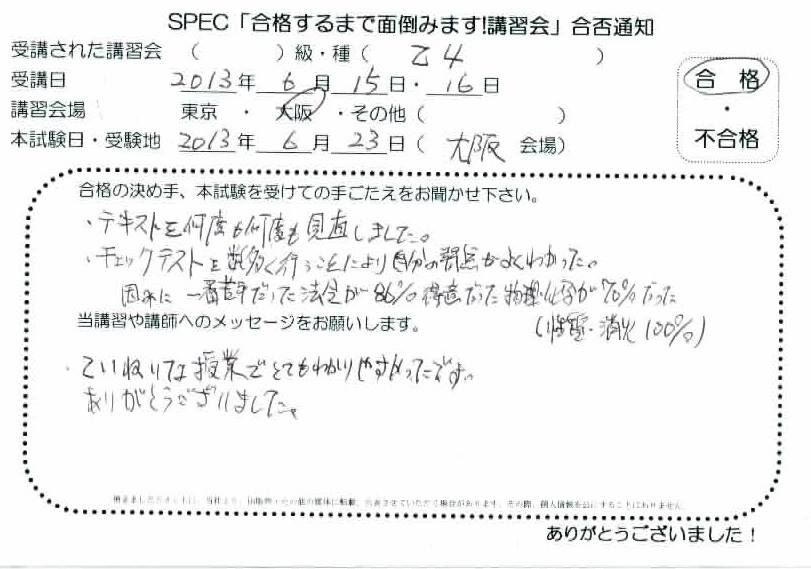 SPEC「合格するまで面倒みます!講習会」合否通知
受講された講習会 （ ）級・種（ 乙4 ）
受講日 2013年 6月 15日・16日
合格
・
不合格
講習会場 東京 ・ 大阪 ・その他（ ）
本試験日・受験地 2013年 6月 23日（ 大阪 会場）
合格の決め手、本試験を受けての手ごたえをお聞かせ下さい。
・テキストを何度も何度も見直しました。
・チェックテストを数多く行うことにより自分の弱点がよくわかった。
因みに 一番苦手だった法令が86% 得意だった物理・化学が70%だった
(性質・消火100%)
当講習や講師へのメッセージをお願いします。
・ていねいな授業でとてもわかりやすかったです。
ありがとうございました。
ありがとうございました！